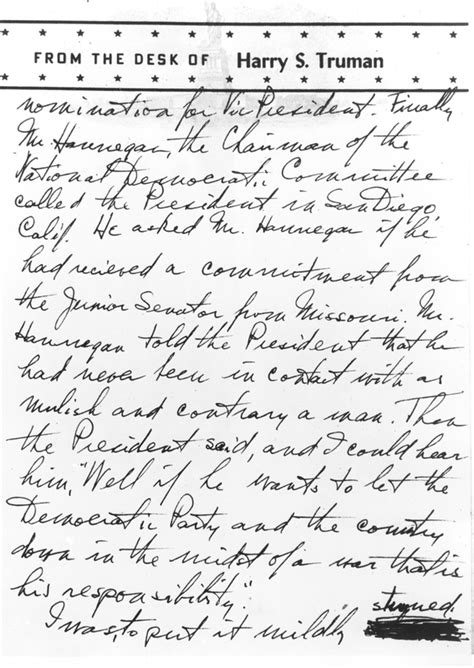 FROM THE DESK OF Harry S. Truman
nomination for Vice President. Finally
Mr. Hannegan, the Chairman of the
National Democratic Committee
called the President in San Diego,
Calif. He asked Mr. Hannegan if he
had recieved a commitment from
the Junior Senator from Missouri. Mr.
Hannegan told the President that he
had never been in contact with as
mulish and contrary a man. Then
the President said, and I could hear
him, "Well if he wants to let the
Democratic Party and the country
down in the midst of a war that is
his responsibility."
I was, to put it mildly stunned.